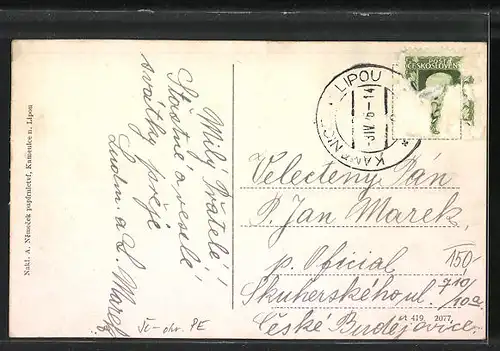 Nakl. A. Němeček papírnictví, Kamenice n. Lipou
Milý Přátelé!
Šťastné a veselé
svátky přeje
Ludm. a L. Marek
POŠTA
ČESKOSLOVEN
KAMENIC
LIPOU
-3.IV.
-14
Velectěný Pán
P. Jan Marek,
p. Oficial
Skuherského ul. 710/10a.
České Budějovice.
150-
419. 2077.